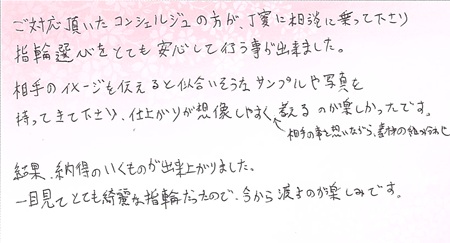 ご対応頂いたコンシェルジュの方が、丁寧に相談に乗って下さり
指輪選びをとても安心して行う事が出来ました。
相手のイメージを伝えると似合いそうなサンプルや写真を
持ってきて下さり、仕上がりが想像しやすく考えるのが楽しかったです。
相手の事を想いながら、素材の組み合わせ
結果、納得のいくものが出来上がりました。
一目見てとても綺麗な指輪だったので、今から渡すのが楽しみです。